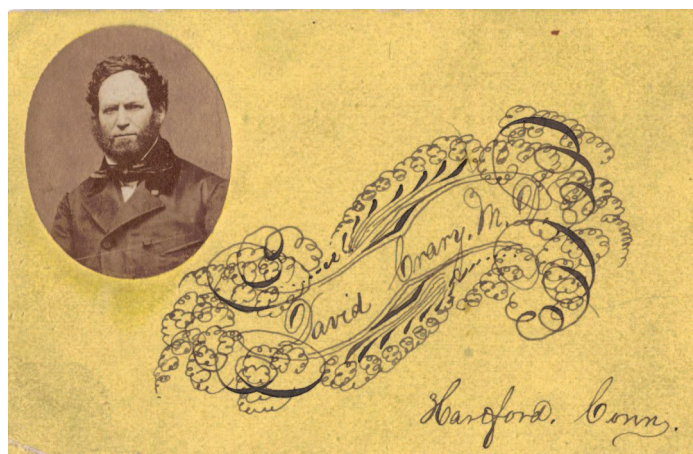 David Crary, M.D.
Hartford. Conn.